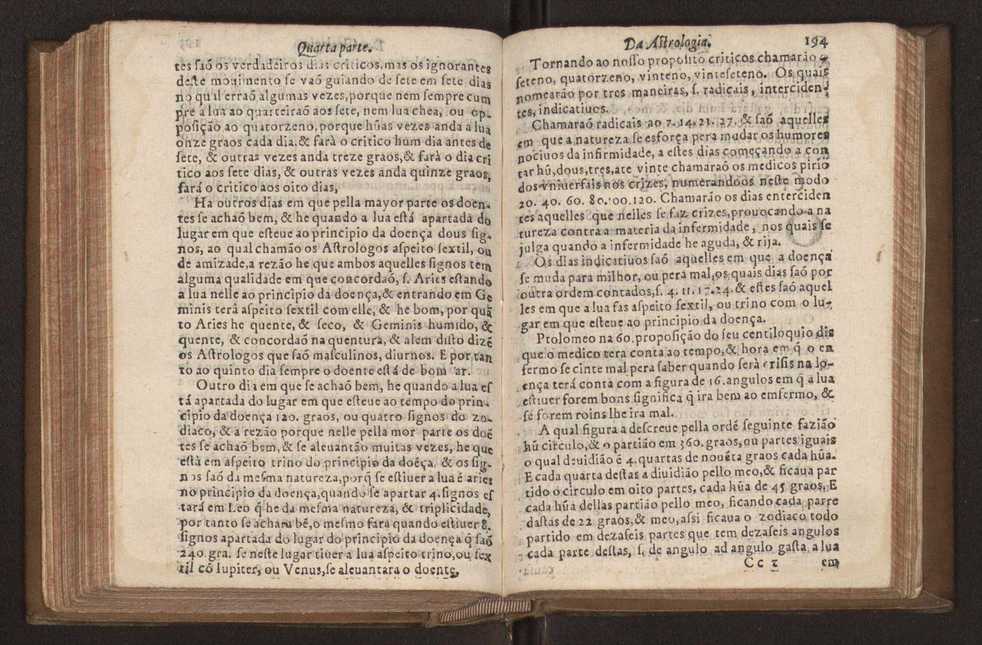 Quarta parte.
tes saõ os verdadeiros dias criticos, mas os ignorantes
deste mouimento se vaõ guiando de sete em sete dias
no qual erraõ algumas vezes, porque nem sempre cum
pre a lua ao quarteiraõ aos sete, nem lua chea, ou op-
posição ao quatorzeno, porque hũas vezes anda a lua
onze graos cada dia, & farà o critico hum dia antes de
sete, & outras vezes anda treze graos, & farà o dia cri
tico aos sete dias, & outras vezes anda quinze graos,
farà o critico aos oito dias,
Ha outros dias em que pella mayor parte os doen-
tes se achaõ bem, & he quando a lua està apartada do
lugar em que esteue ao principio da doença dous sig-
nos, ao qual chamão os Astrologos aspeito sextil, ou
de amizade, a rezão he que ambos aquelles signos tem
alguma qualidade em que concordaõ, s. Aries estando
a lua nelle ao principio da doença, & entrando em Ge
minis terà aspeito sextil com elle, & he bom, por quã
to Aries he quente, & seco, & Geminis humido, &
quente, & concordaõ na quentura, & alem disto dizẽ
os Astrologos que saõ masculinos, diurnos. E por tan
to ao quinto dia sempre o doente està de bom ar.
Outro dia em que se achaõ bem, he quando a lua es
tá apartada do lugar em que esteue ao tempo do prin-
cipio da doença 120. graos, ou quatro signos do zo-
diaco, & a rezão porque nelle pella mor parte os doẽ
tes se achaõ bem, & se aleuantão muitas vezes, he que
està em aspeito trino do principio da doẽça, & os sig-
nos saõ da mesma natureza, porq̃ se estiuer a lua ẽ aries
no principio da doença, quando se apartar 4. signos es
tará em Leo q̃ he da mesma natureza, & triplicidade,
por tanto se acham bẽ, o mesmo fara quando estiuer 8.
signos apartada do lugar do principio da doença q̃ saõ
240. gra. se neste lugar tiuer a lua aspeito trino, ou sex
til cõ Iupiter, ou Venus, se aleuantara o doente,
Da Astrologia. 194
Tornando ao nosso proposito criticos chamaraõ o
seteno, quatorzeno, vinteno, vinteseteno. Os quais
nomearão por tres maneiras, s. radicais, interciden-
tes, indicatiuos.
Chamaraõ radicais ao 7. 14. 21. 27. & saõ aquelles
em que a natureza se esforça pera mudar os humores
nociuos da infirmidade, a estes dias começando a con
tar hũ, dous, tres, ate vinte chamaraõ os medicos pirio
dos vniuersais nos crizes, numerandoos neste modo
20. 40. 60. 80. 00. 120. Chamarão os dias enterciden
tes aquelles que nelles se faz crizes, prouocando a na
tureza contra a materia da infermidade, nos quais se
julga quando a infermidade he aguda, & rija.
Os dias indicatiuos saõ aquelles em que a doença
se muda para milhor, ou pera mal, os quais dias saõ por
outra ordem contados, s. 4. 11. 17. 24. & estes saõ aquel
les em que a lua fas aspeito sextil, ou trino com o lu-
gar em que esteue ao principio da doença.
Ptolomeo na 60. proposição do seu centiloquio dis
que o medico tera conta ao tempo, & hora em q̃ o en
fermo se cinte mal pera saber quando serà crisis na do-
ença terá conta com a figura de 16. angulos em q̃ a lua
estiuer forem bons significa q̃ ira bem ao emfermo, &
se forem roins lhe ira mal.
A qual figura a descreue pella ordẽ seguinte fazião
hũ circulo, & o partião em 360. graos, ou partes iguais
o qual deuidião ẽ 4. quartas de nouẽta graos cada hũa.
E cada quarta destas a diuidião pello meo, & ficaua par
tido o circulo em oito partes, cada hũa de 45 graos, E
cada hũa dellas partião pello meo, ficando cada parte
dastas de 22 graos, & meo, assi ficaua o zodiaco todo
partido em dezaseis partes que tem dezaseis angulos
cada parte destas, s. de angulo ad angulo gasta a lua
Cc 2 em